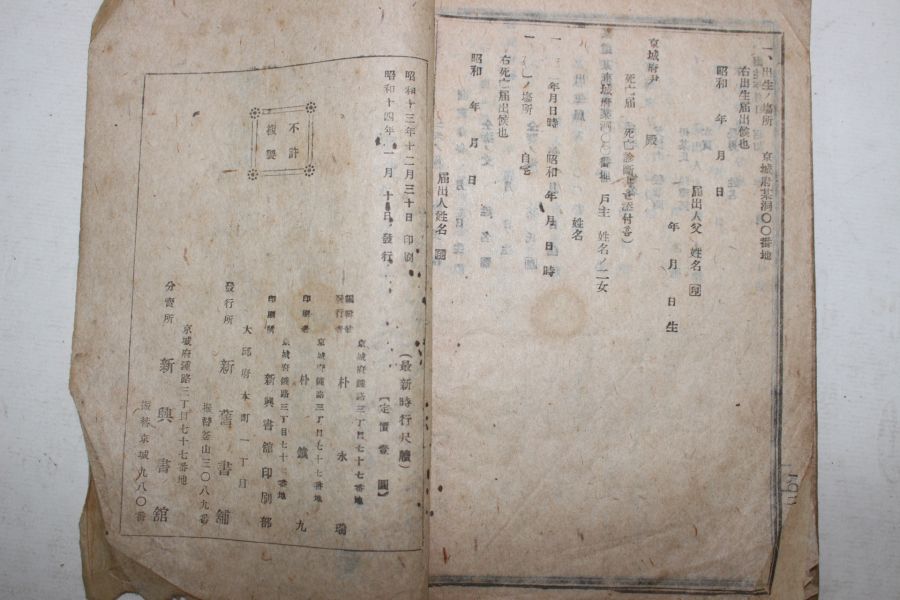 一、出生ノ場所 京城府某洞〇〇番地
右出生届出候也
昭和 年 月 日
届出人父 姓名 印
年 月 日 生
京城府尹 殿
死亡届 死亡診斷書
城府某洞〇〇番地 戶主 姓名ノ二女
姓名
一 年月日時 昭和 年 月 日 時
一 亡ノ場所 自宅
右死亡届出候也
昭和 年 月 日
届出人姓名 印
昭和十三年十二月三十日 印刷
昭和十四年 一月 十日 發行
不許
複製
(最新時行尺牘)
【定價 圓】
發行者
京城府鍾路三丁目七十七番地
朴 永 瑞
印刷者
京城府鍾路三丁目七十七番地
朴 鎭 九
印刷所
京城府鍾路三丁目七十 番地
新興書舘印刷部
大邱府本町一丁目
發行所 新舊書舖
振替釜山三〇八九番
京城府鍾路三丁目七十七番地
分賣所 新興書舘
振替京城九八〇番